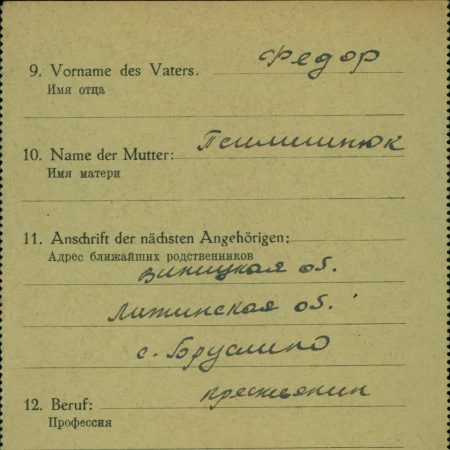 Федор
9. Vorname des Vaters.
Имя отца
10. Name der Mutter:
Имя матери
11. Anschrift der nächsten Angehörigen:
Адрес ближайших родственников
виницкая об.
об.
с. Бруслино
12. Beruf:
Профессия